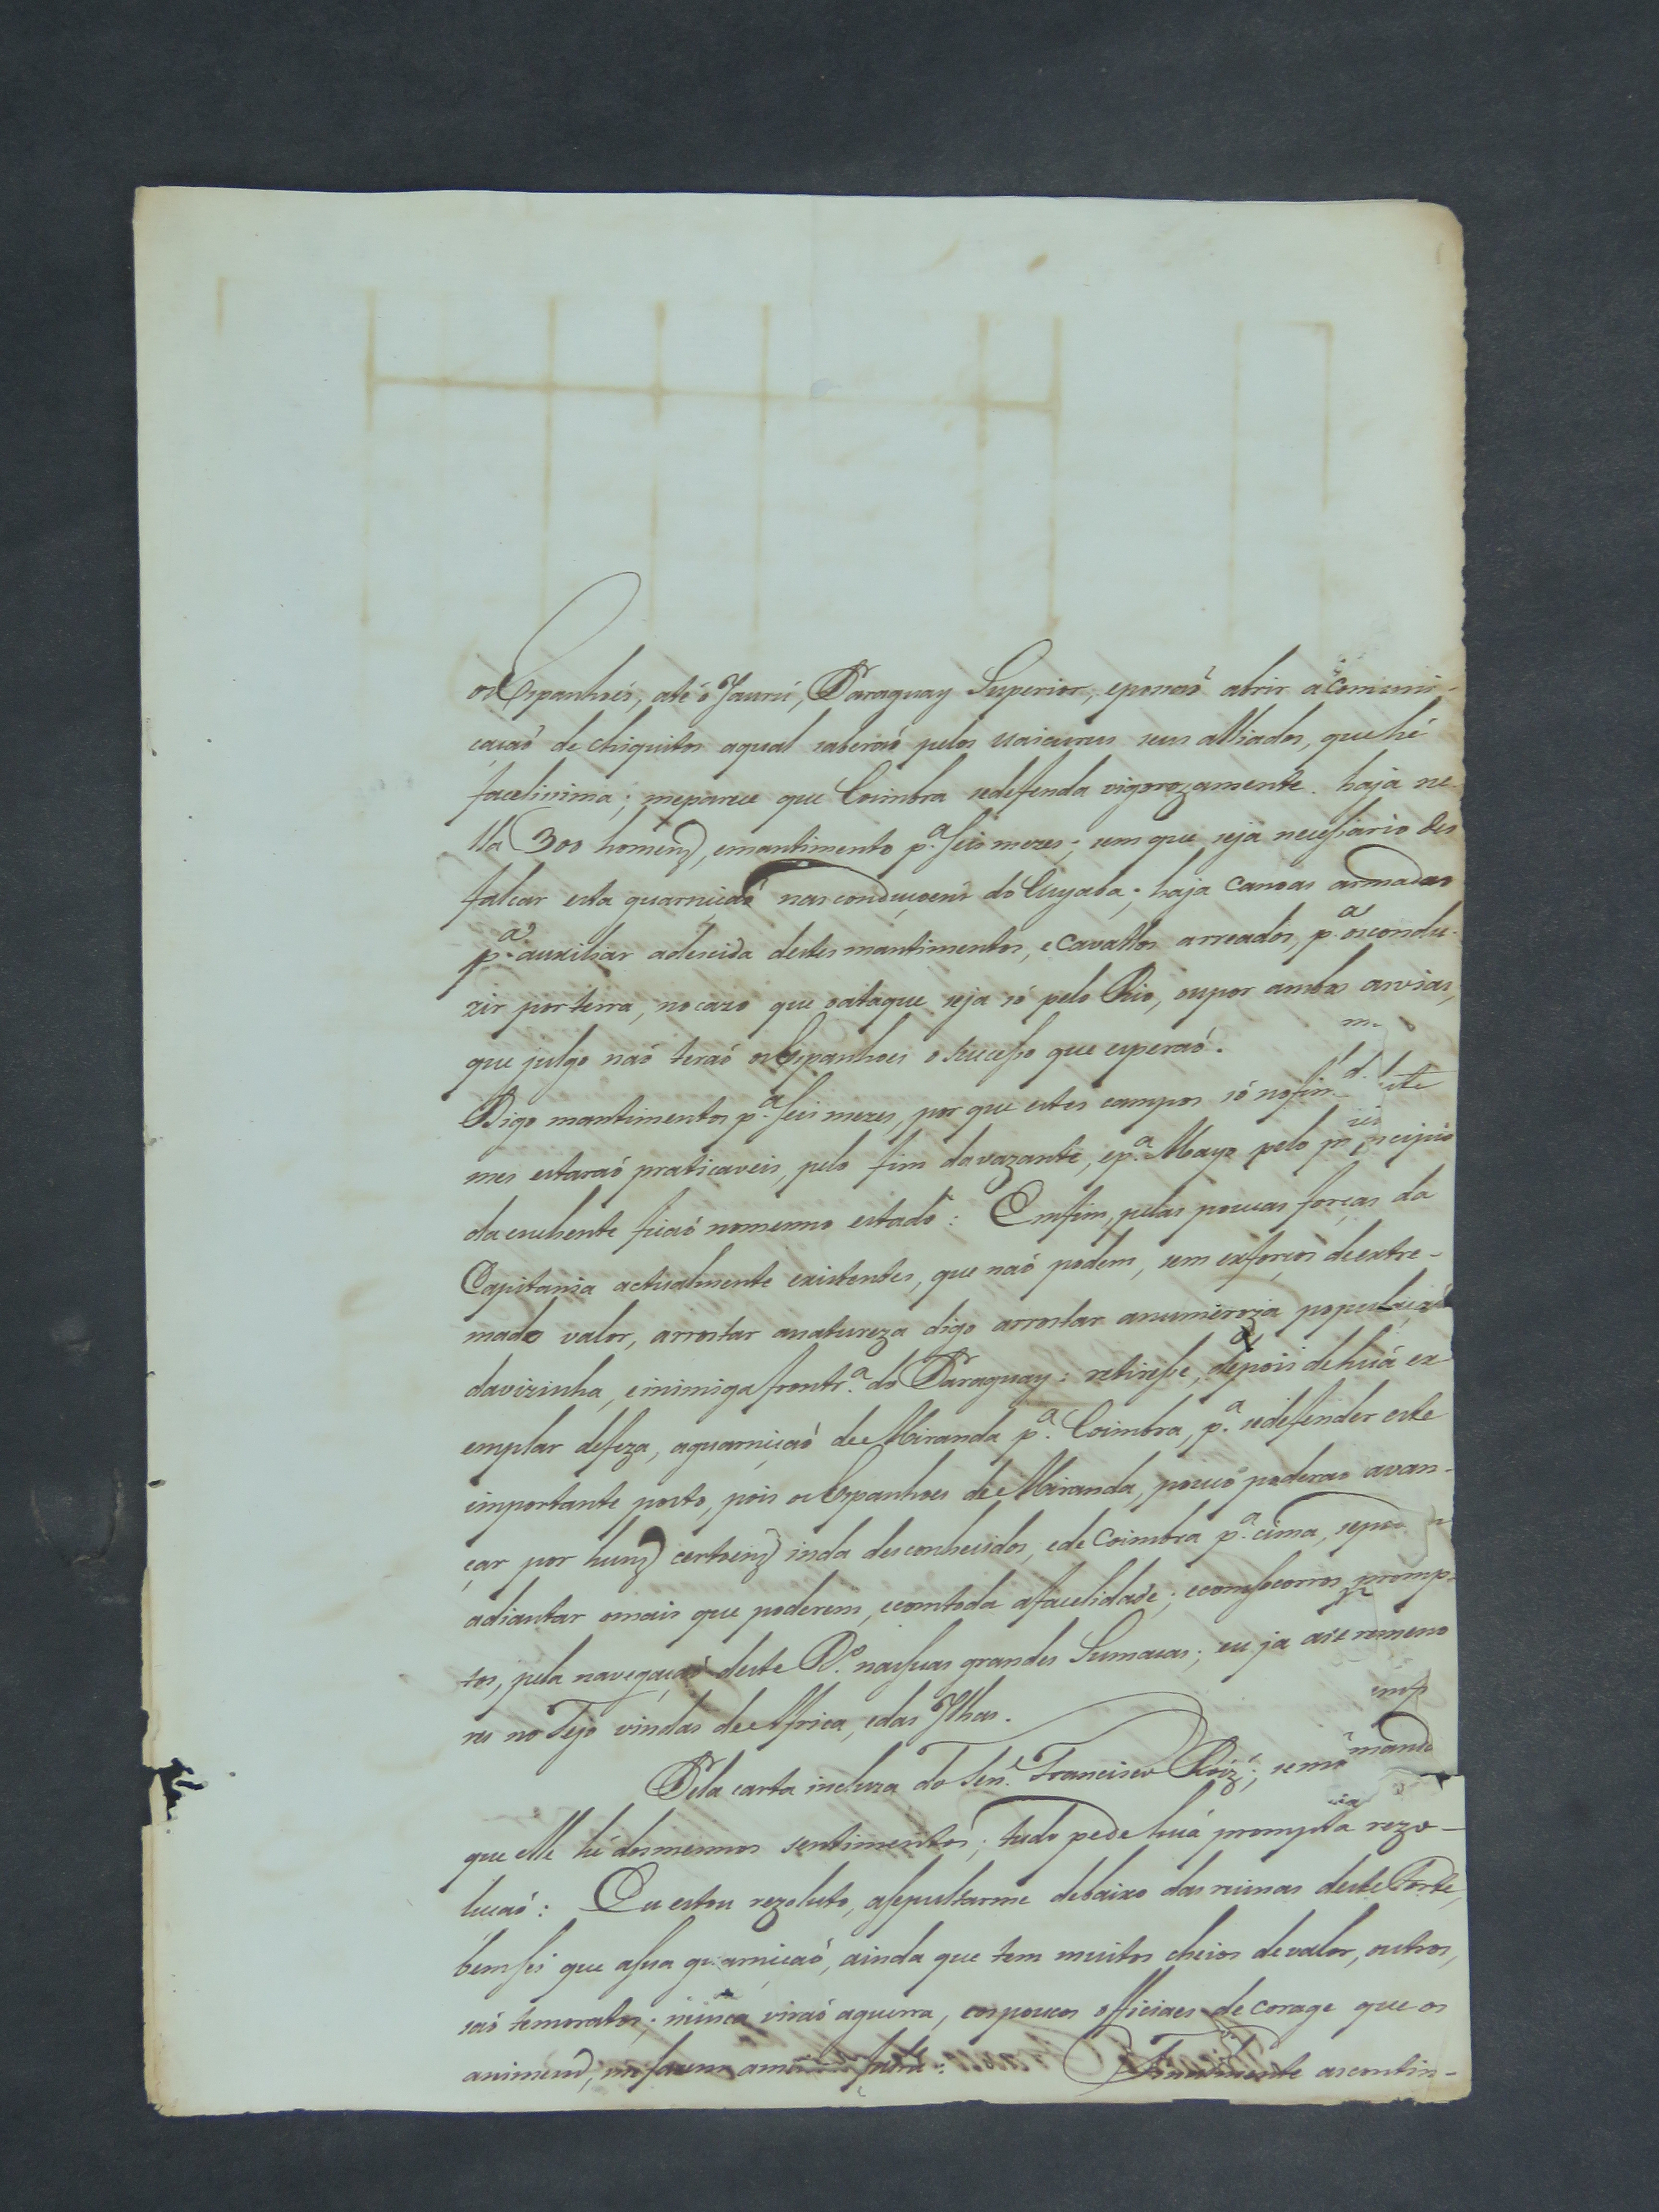 os Espanhoes, até o Jaurú, Paraguay Superior, eponaõ abrir a comuni-
caçaõ de chiquitos aqual saberaõ pelos uaicurus seus alliados, que hé
facelissima; meparece que Coimbra sedefenda vigorozamente. haja ne-
lla 300 homens, emantimento p.ª seis mezes; sem que seja necessario des
falcar esta guarniçaõ nas conduçoens do Cuyabá; haja canoas armadas
p.ª auxiliar adescida destes mantimentos, e cavallos arreados, p.ª os condu-
zir por terra, no cazo que oataque seja só pelo Rio, oupor ambas as vias,
que julgo naõ teraõ os Espanhoes o sucesso que esperaõ.
Digo mantimentos p.ª seis mezes, por que estes campos só nofim d. este
mes estaraõ praticaveis, pelo fim davazante, ep.ª Mayo pelo principio
da enchente ficaõ nomesmo estado: Emfim, pelas poucas forças da
Capitania actualmente existentes, que naõ podem, sem exforços de extre-
mado valor, arrostar anatureza digo arrostar anumeroza populaçaõ
davizinha, e inimiga front.ª do Paraguay: retiresse, depois dehuã ex
emplar defeza, aguarniçaõ de Miranda p.ª Coimbra, p.ª sedefender este
importante posto, pois os Espanhoes de Miranda, pouco poderaõ avan-
çar por huns certoens inda desconhecidos, e de Coimbra p.ª cima, sepo
adiantar omais que poderem, ecomtoda afacelidade; ecomsocorros promp-
tos, pela navegaçaõ deste R.º nassuas grandes Sumacas; eu ja
no Tejo vindas de Africa, e das Ilhas.
Pela carta incluza do Ten.e Francisco Roiz; semo mando
que elle hé dosmesmos sentimentos; tudo pede huã prompta rezo-
luçaõ: Eu estou rezoluto, asepultarme debaixo das ruinas deste Forte,
bem sei que asua guarniçaõ, ainda que tem muitos cheios devalor, outros,
saõ temoratos; nunca viraõ aguerra, eos poucos officiaes de corage que os
animem, Finalmente ascontin-